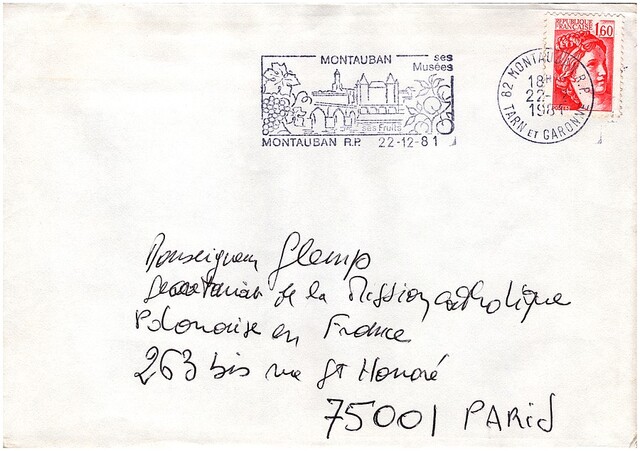 MONTAUBAN
ses
Musées
ses Fruits
MONTAUBAN R.P. 22-12-81
82 MONTAUBAN R.P.
18H
22-
1981
TARN ET GARONNE
REPUBLIQUE
FRANÇAISE
1,60
Monseigneur Glemp
Secretariat de la Mission catholique
Polonaise en France
263 bis rue St Honoré
75001 PARIS